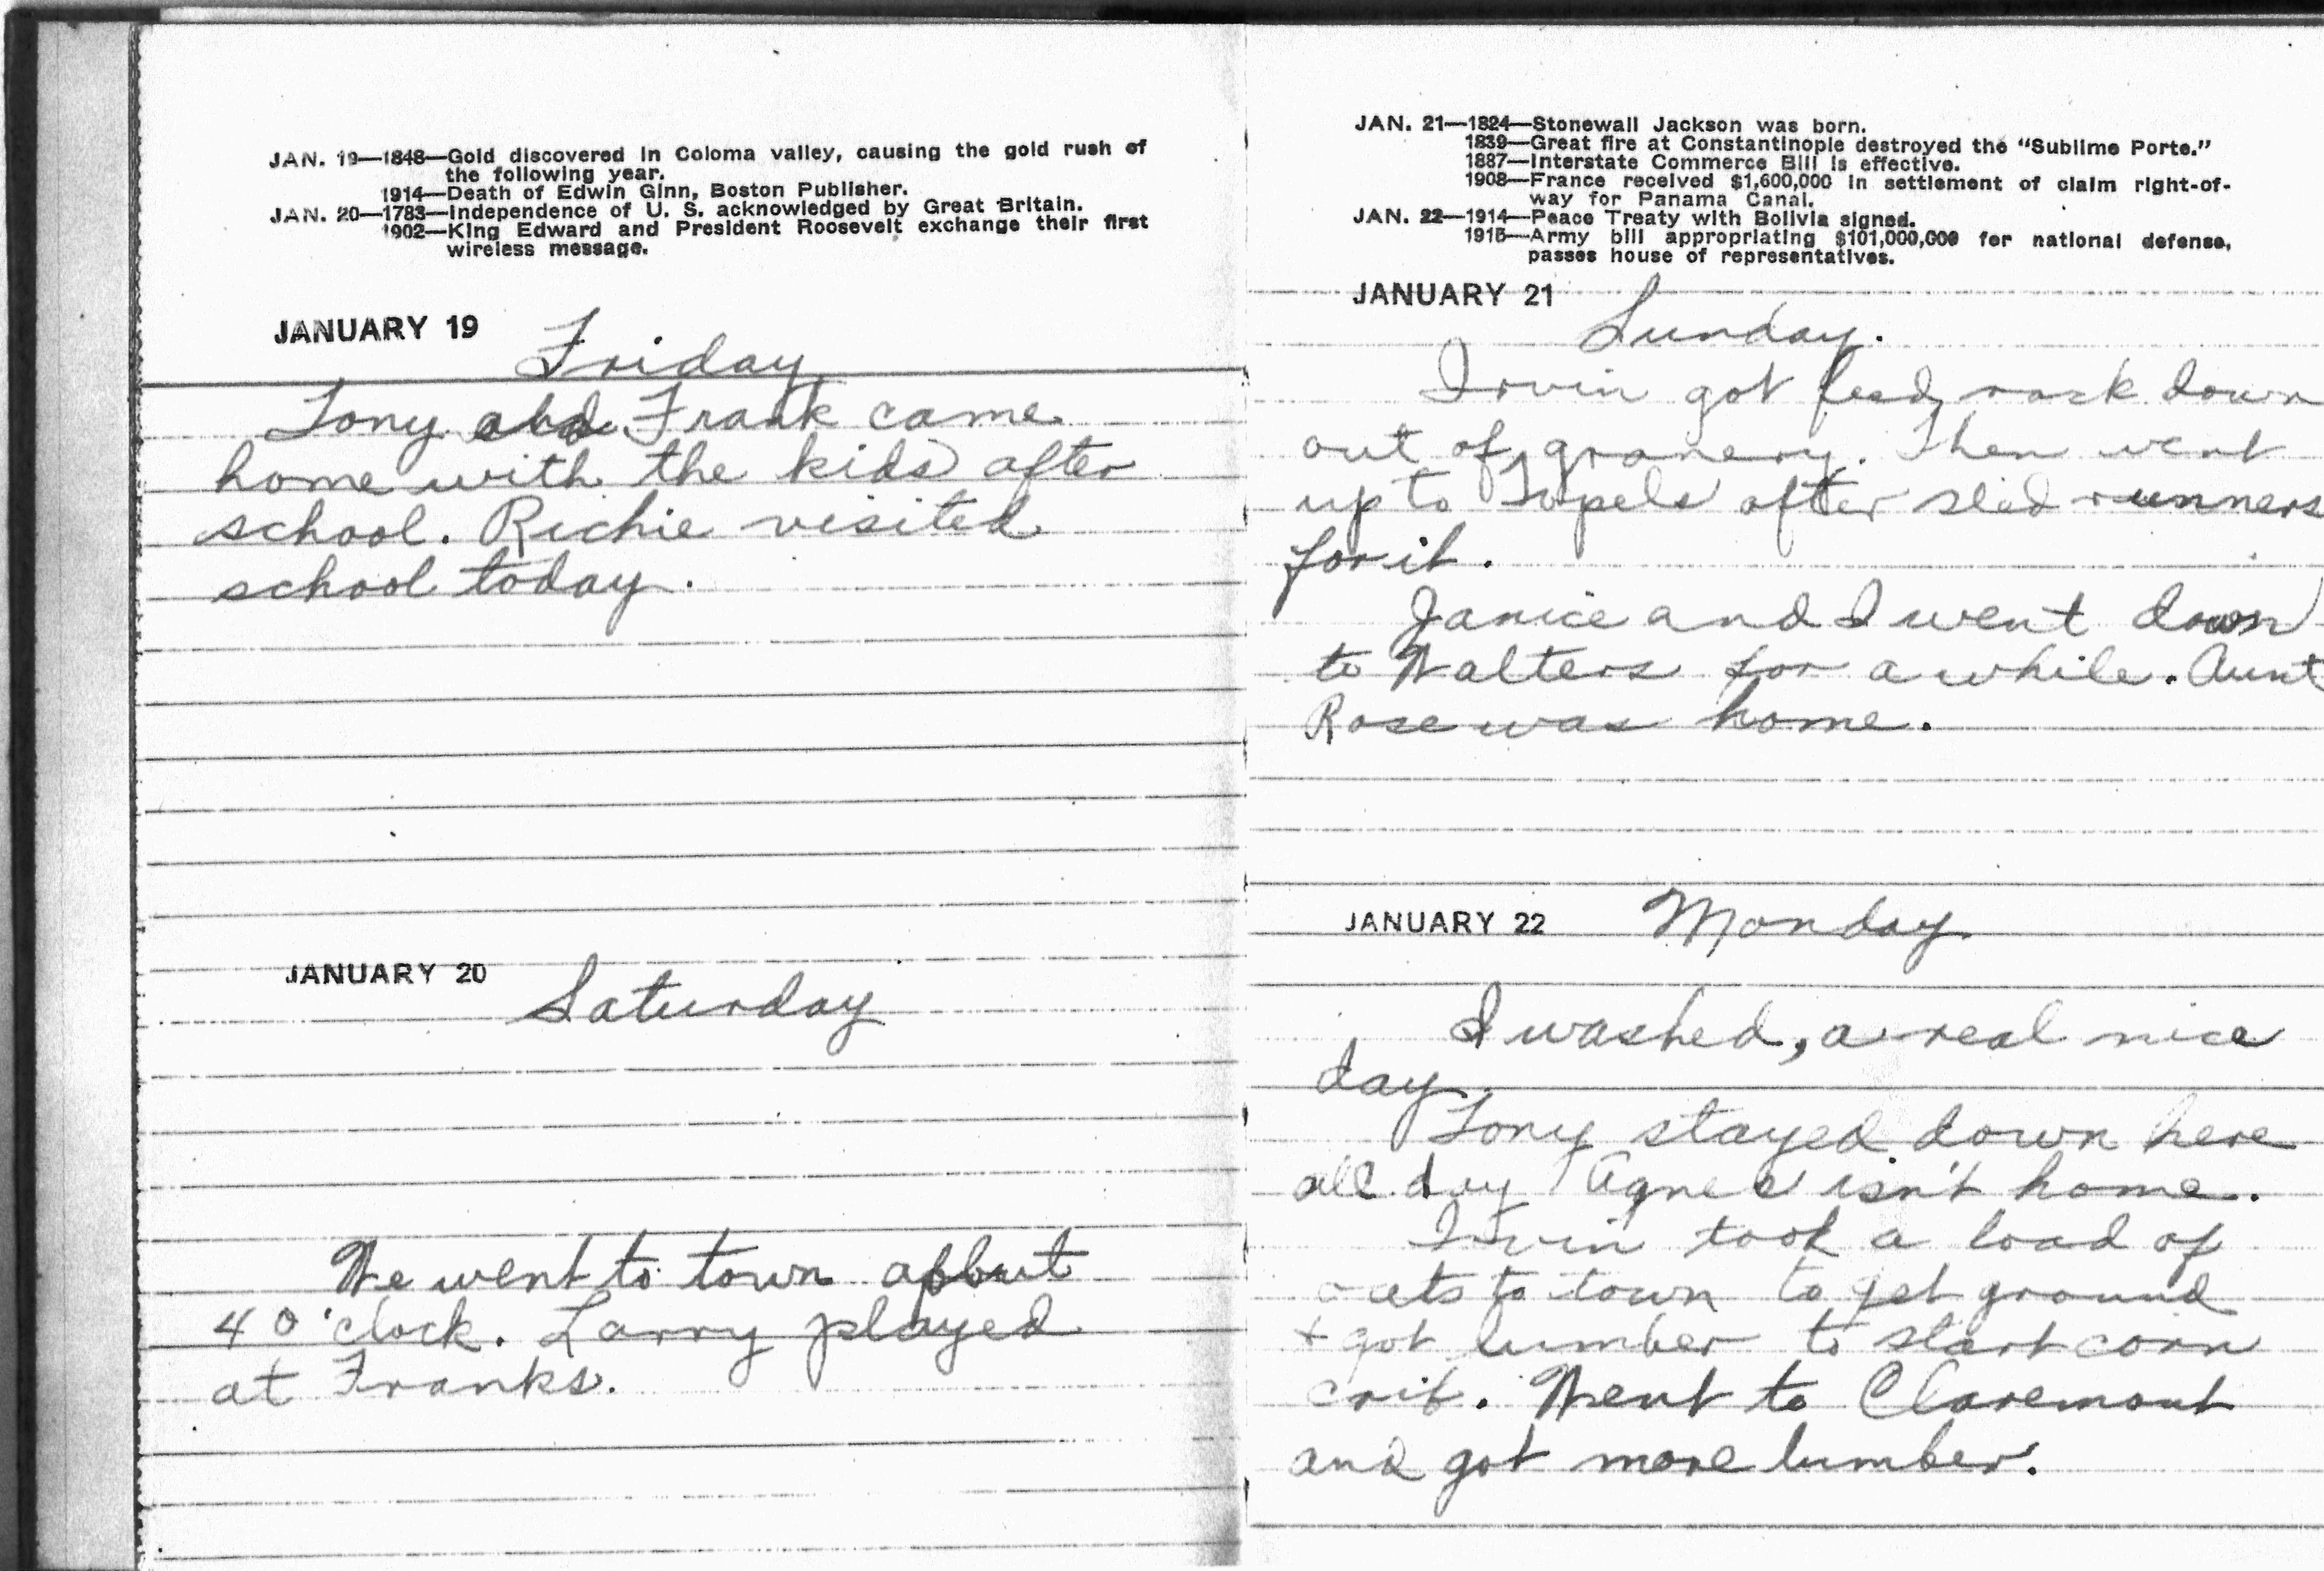 JAN. 19—1848—Gold discovered in Coloma valley, causing the gold rush of
the following year.
1914—Death of Edwin Ginn, Boston Publisher.
JAN. 20—1783—Independence of U. S. acknowledged by Great Britain.
1902—King Edward and President Roosevelt exchange their first
wireless message.
JANUARY 19 Friday
Tony and Frank came
home with the kids after
school. Richie visited
school today.
JANUARY 20 Saturday
We went to town about
4 o'clock. Larry played
at Franks.
JAN. 21—1824—Stonewall Jackson was born.
1839—Great fire at Constantinople destroyed the "Sublime Porte."
1887—Interstate Commerce Bill is effective.
1908—France received $1,600,000 in settlement of claim right-of-
way for Panama Canal.
JAN. 22—1914—Peace Treaty with Bolivia signed.
1915—Army bill appropriating $101,000,000 for national defense,
passes house of representatives.
JANUARY 21 Sunday.
Irvin got feed rack down
out of granery. Then went
up to after sled runners
for it.
Janice and I went down
to Walters for a while. Aunt
Rose was home.
JANUARY 22 Monday
I washed, a real nice
day.
Tony stayed down here
all day Agnes isn't home.
Irvin took a load of
oats to town to get ground
+ got lumber to start corn
crib. Went to Claremont
and got more lumber.